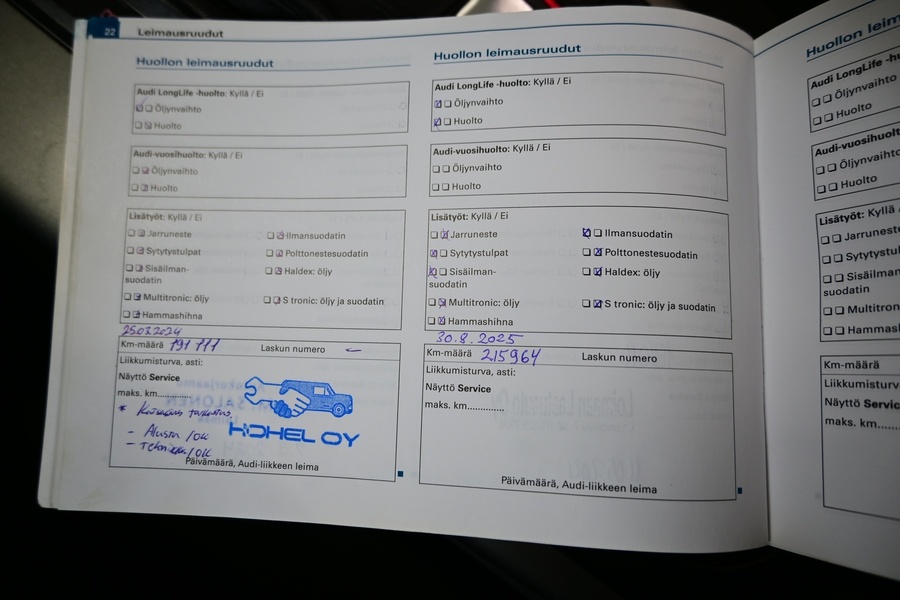 22 Leimausruudut
Huollon leimausruudut
Audi LongLife -huolto: Kyllä / Ei
Öljynvaihto
Huolto
Audi-vuosihuolto: Kyllä / Ei
Öljynvaihto
Huolto
Lisätyöt: Kyllä / Ei
Jarruneste
Ilmansuodatin
Sytytystulpat
Polttonestesuodatin
Sisäilman-
suodatin
Haldex: öljy
Multitronic: öljy
S tronic: öljy ja suodatin
Hammashihna
25.03.2024
Km-määrä 191777
Laskun numero
Liikkumisturva, asti:
Näyttö Service
maks. km.............
- Alusta /OK
- Tekniikka/OK
HDHEL OY
Päivämäärä, Audi-liikkeen leima
Huollon leimausruudut
Audi LongLife -huolto: Kyllä / Ei
Öljynvaihto
Huolto
Audi-vuosihuolto: Kyllä / Ei
Öljynvaihto
Huolto
Lisätyöt: Kyllä / Ei
Jarruneste
Ilmansuodatin
Sytytystulpat
Polttonestesuodatin
Sisäilman-
suodatin
Haldex: öljy
Multitronic: öljy
S tronic: öljy ja suodatin
Hammashihna
30.8.2025
Km-määrä 215964
Laskun numero
Liikkumisturva, asti:
Näyttö Service
maks. km.............
Päivämäärä, Audi-liikkeen leima
Huollon leim
Audi LongLife -hu
Öljynvaihto
Huolto
Audi-vuosihuolt
Öljynvaihto
Huolto
Lisätyöt: Kyllä /
Jarruneste
Sytytystul
Sisäilman-
suodatin
Multitron
Hammas
Km-määrä
Liikkumisturva
Näyttö Servic
maks. km.....